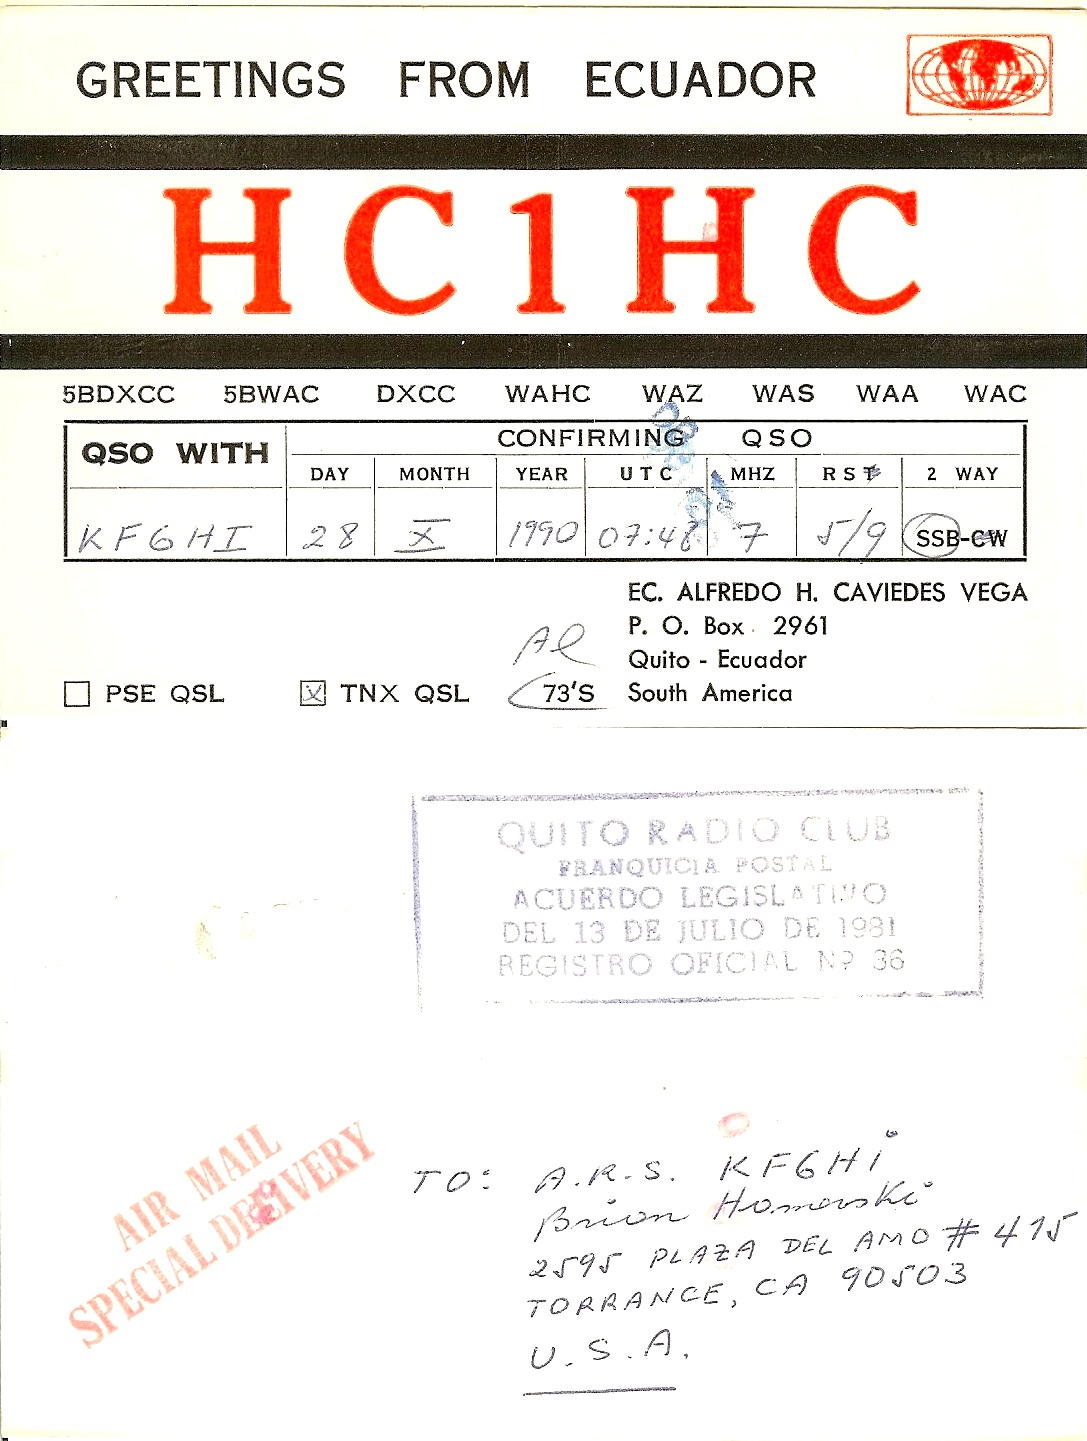 GREETINGS FROM ECUADOR
HC1HC
5BDXCC 5BWAC DXCC WAHC WAZ WAS WAA WAC
QSO WITH CONFIRMING QSO
DAY MONTH YEAR UTC MHZ RST 2 WAY
KF6HI 28 X 1990 07:48 7 5/9 SSB-CW
EC. ALFREDO H. CAVIEDES VEGA
P. O. Box 2961
Al Quito - Ecuador
PSE QSL X TNX QSL 73'S South America
QUITO RADIO CLUB
FRANQUICIA POSTAL
ACUERDO LEGISLATIVO
DEL 13 DE JULIO DE 1981
REGISTRO OFICIAL Nº 36
AIR MAIL
SPECIAL DELIVERY
TO: A.R.S. KF6HI
Brian
2595 PLAZA DEL AMO # 415
TORRANCE, CA 90503
U.S.A.